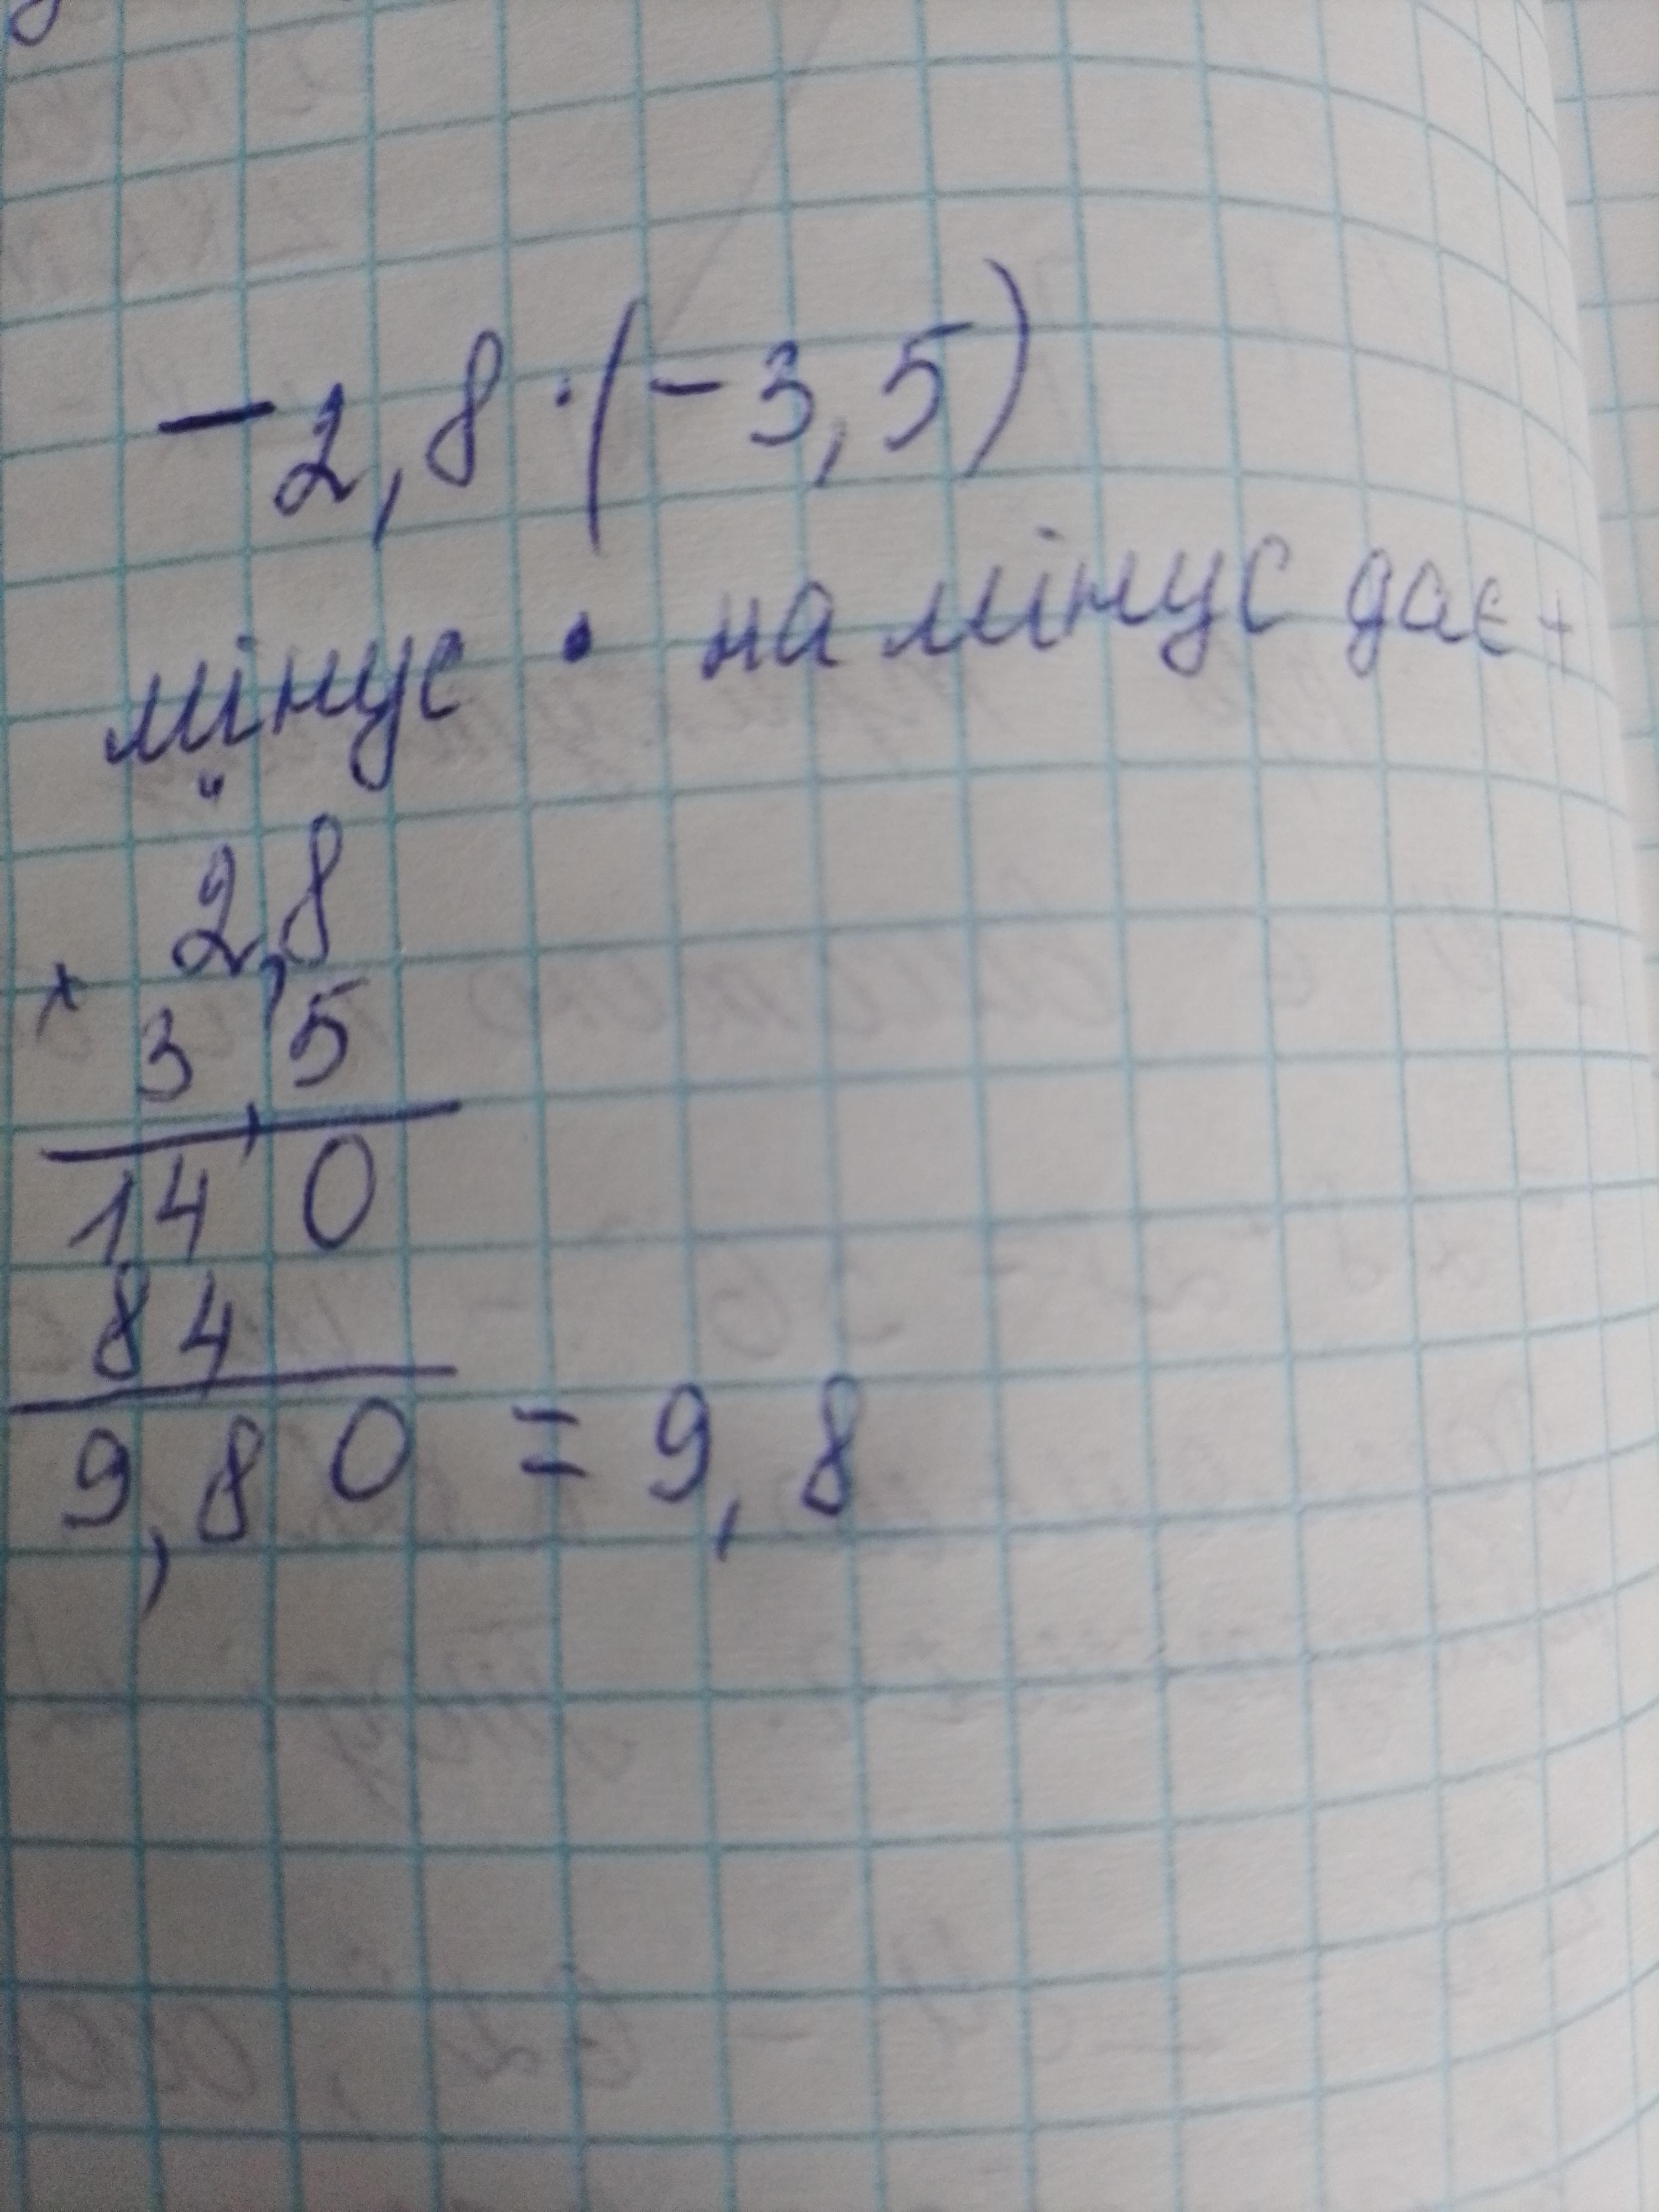 -2,8 · (-3,5)
мінус · на мінус дає +
"
2,8
× 3,5
140
84
9,80 = 9,8